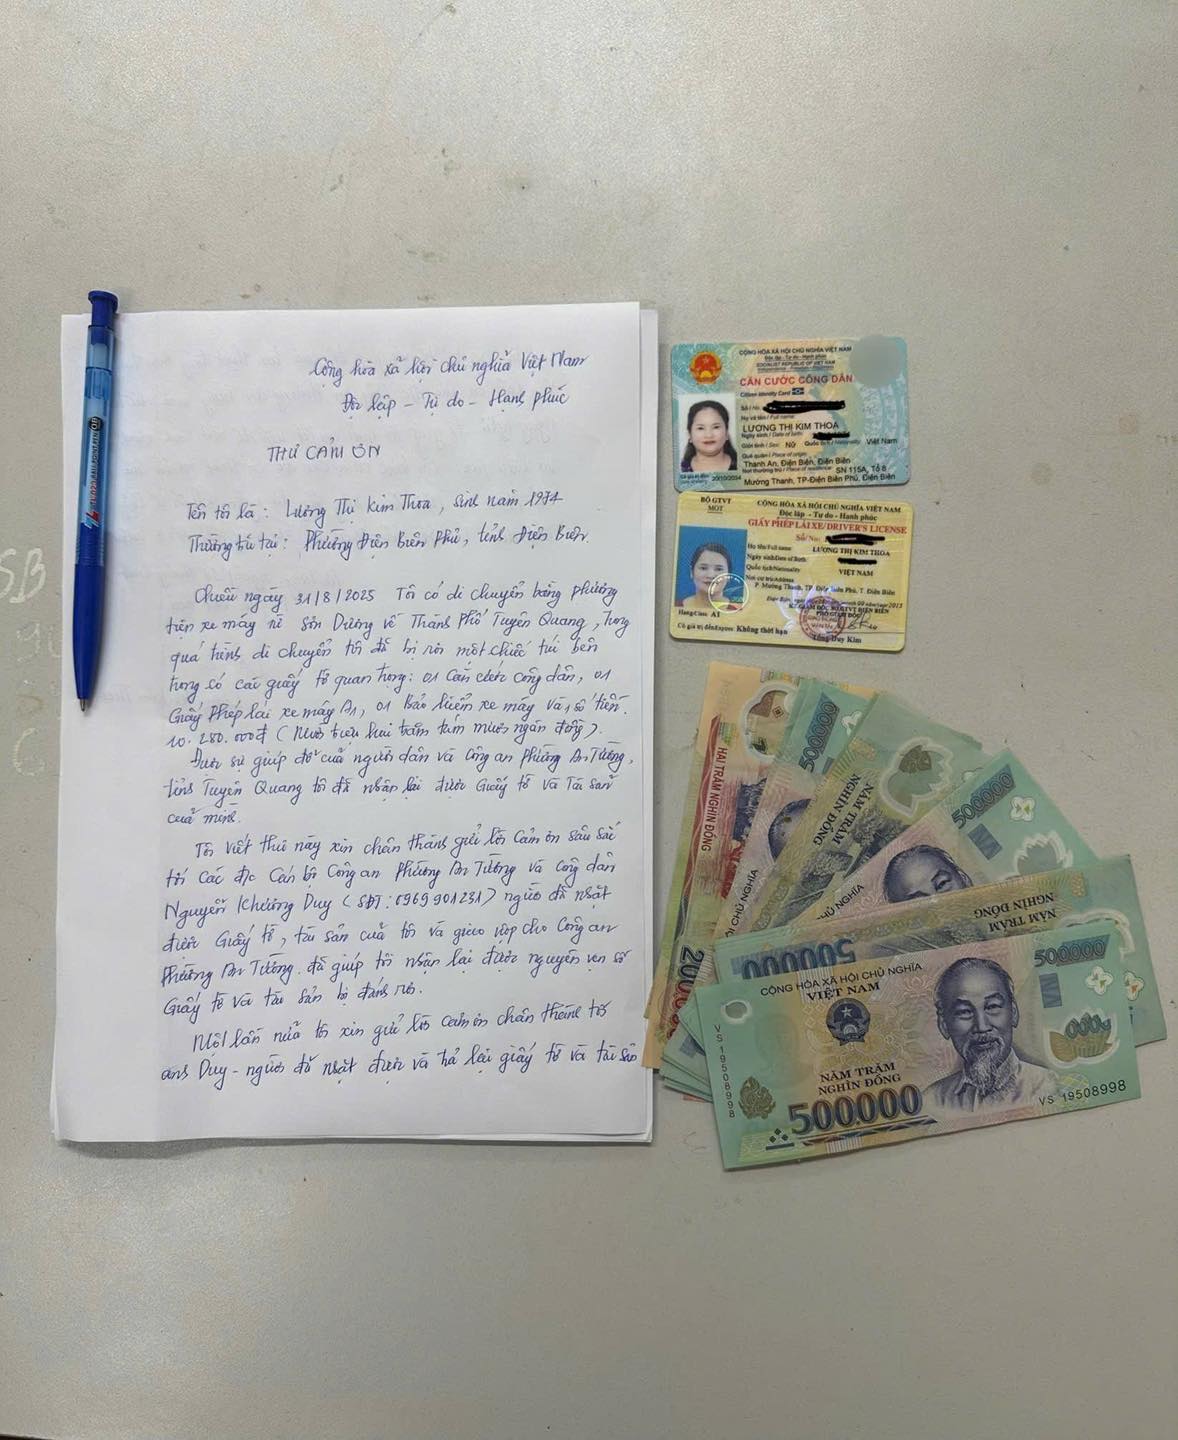 Cộng hòa xã hội chủ nghĩa Việt Nam
Độc lập - Tự do - Hạnh phúc
THƯ CẢM ƠN
Tên tôi là: Lương Thị Kim Thoa, sinh năm 1974
Thường trú tại: Phường Điện Biên Phủ, tỉnh Điện Biên.
Chiều ngày 31/8/2025 Tôi có di chuyển bằng phương
tiện xe máy từ Sơn Dương về Thành Phố Tuyên Quang, trong
quá trình di chuyển tôi đã bị rơi một chiếc túi bên
trong có các giấy tờ quan trọng: 01 Căn cước công dân, 01
Giấy phép lái xe máy A1, 01 Bảo hiểm xe máy và số tiền
10.280.000đ (Mười triệu hai trăm tám mươi ngàn đồng).
Được sự giúp đỡ của người dân và Công an phường An Tường,
tỉnh Tuyên Quang tôi đã nhận lại được Giấy tờ và Tài sản
của mình.
Tôi viết thư này xin chân thành gửi lời cảm ơn sâu sắc
tới các đ/c Cán bộ Công an phường An Tường và công dân
Nguyễn Khương Duy (SĐT: 0969901231) người đã nhặt
được Giấy tờ, tài sản của tôi và giao nộp cho Công an
Phường An Tường. đã giúp tôi nhận lại được nguyên vẹn số
Giấy tờ và tài sản bị đánh rơi.
Một lần nữa tôi xin gửi lời cảm ơn chân thành tới
anh Duy - người đã nhặt được và trả lại giấy tờ và tài sản
CỘNG HÒA XÃ HỘI CHỦ NGHĨA VIỆT NAM
Độc lập - Tự do - Hạnh phúc
SOCIALIST REPUBLIC OF VIET NAM
CĂN CƯỚC CÔNG DÂN
Citizen Identity Card
Số / No.
Họ và tên / Full name:
LƯƠNG THỊ KIM THOA
Ngày sinh / Date of birth:
Giới tính / Sex: Nữ Quốc tịch / Nationality: Việt Nam
Quê quán / Place of origin:
Thanh An, Điện Biên, Điện Biên
Nơi thường trú / Place of residence: SN 115A, Tổ 8
Mường Thanh, TP-Điện Biên Phủ, Điện Biên
20/10/2034
BỘ GTVT
MOT
CỘNG HÒA XÃ HỘI CHỦ NGHĨA VIỆT NAM
Độc lập - Tự do - Hạnh phúc
GIẤY PHÉP LÁI XE/DRIVER'S LICENSE
Số/No:
Họ tên/Full name: LƯƠNG THỊ KIM THOA
Ngày sinh/Date of Birth:
Quốc tịch/Nationality: VIỆT NAM
Nơi cư trú/Address:
P. Mường Thanh, TP. Điện Biên Phủ, T. Điện Biên
Hạng/Class: A1
Có giá trị đến/Expires: Không thời hạn
Lòng Duy Kim
HAI TRĂM NGHÌN ĐỒNG
500.000
NĂM TRĂM
NGHÌN ĐỒNG
500.000
NĂM TRĂM
NGHÌN ĐỒNG
500.000
CỘNG HÒA XÃ HỘI CHỦ NGHĨA
VIỆT NAM
500.000
VS 19508998
NĂM TRĂM
NGHÌN ĐỒNG
500000
VS 19508998